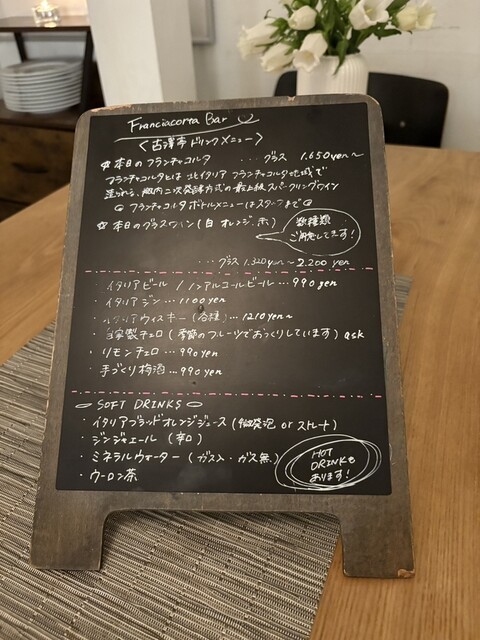 Franciacorta Bar
ドリンクメニュー〉
☆ 本日の フランチャコルタ ... グラス 1.650 yen~
フランチャコルタとは 北イタリア フランチャコルタ地域で
造られる、瓶内二次発酵方式の最上級 スパークリングワイン
フランチャコルタ ボトルメニューは スタッフまで
☆ 本日のグラスワイン (白 オレンジ 赤)
数種類
ご用意してます!
... グラス 1.320 yen ~ 2.200 yen
・イタリアビール / ノンアルコールビール ... 990 yen
・イタリア ジン ... 1100 yen
・イタリアウィスキー (各種) ... 1210 yen~
・自家製チェロ (季節のフルーツでおつくりしています) ask
・リモンチェロ ... 990 yen
・手づくり梅酒 ... 990 yen
SOFT DRINKS
・イタリアブラッドオレンジジュース (微発泡 or ストレート)
・ジンジャエール (辛口)
・ミネラルウォーター (ガス入・ガス無)
・ウーロン茶
HOT
DRINKも
あります!